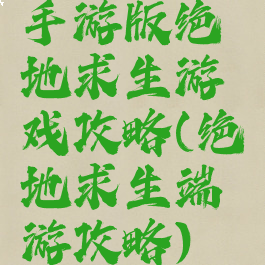 手游版绝
地求生游
戏攻略(绝
地求生端
游攻略)